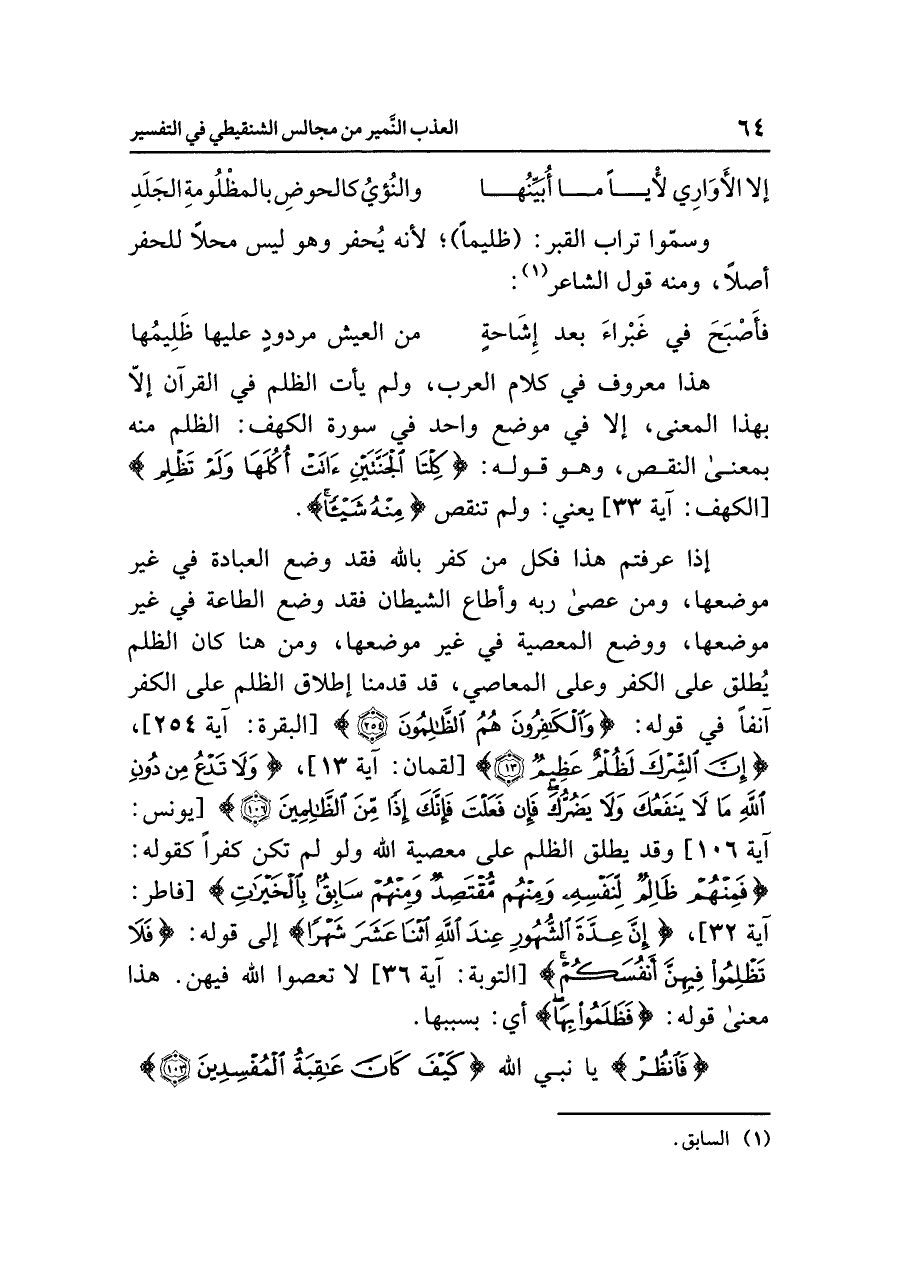 ٦٤ العذب النَّمير من مجالس الشنقيطي في التفسير
إلا الأَوَارِي لأْيـــاً مـــا أُبَيِّنُهـــا والنُؤيُ كالحوضِ بالمظْلُومةِ الجَلَدِ
وسمّوا تراب القبر: (ظليماً)؛ لأنه يُحفر وهو ليس محلاً للحفر
أصلاً، ومنه قول الشاعر(١):
فأَصْبَحَ في غَبْراءَ بعد إِشَاحةٍ من العيش مردودٍ عليها ظَلِيمُها
هذا معروف في كلام العرب، ولم يأت الظلم في القرآن إلاّ
بهذا المعنى، إلا في موضع واحد في سورة الكهف: الظلم منه
بمعنىٰ النقص، وهو قوله: ﴿ كِلْتَا ٱلْجَنَّتَيْنِ ءَاتَتْ أُكُلَهَا وَلَمْ تَظْلِم ﴾
[الكهف: آية ٣٣] يعني: ولم تنقص ﴿ مِنْهُ شَيْـًٔاۚ﴾.
إذا عرفتم هذا فكل من كفر بالله فقد وضع العبادة في غير
موضعها، ومن عصىٰ ربه وأطاع الشيطان فقد وضع الطاعة في غير
موضعها، ووضع المعصية في غير موضعها، ومن هنا كان الظلم
يُطلق على الكفر وعلى المعاصي، قد قدمنا إطلاق الظلم على الكفر
آنفاً في قوله: ﴿ وَٱلْكَٰفِرُونَ هُمُ ٱلظَّٰلِمُونَ ٢٥٤ ﴾ [البقرة: آية ٢٥٤]،
﴿ إِنَّ ٱلشِّرْكَ لَظُلْمٌ عَظِيمٌ ١٣ ﴾ [لقمان: آية ١٣]، ﴿ وَلَا تَدْعُ مِن دُونِ
ٱللَّهِ مَا لَا يَنفَعُكَ وَلَا يَضُرُّكَۖ فَإِن فَعَلْتَ فَإِنَّكَ إِذًا مِّنَ ٱلظَّٰلِمِينَ ١٠٦ ﴾ [يونس:
آية ١٠٦] وقد يطلق الظلم على معصية الله ولو لم تكن كفراً كقوله:
﴿ فَمِنْهُمْ ظَالِمٌ لِّنَفْسِهِۦ وَمِنْهُم مُّقْتَصِدٌ وَمِنْهُمْ سَابِقٌۢ بِٱلْخَيْرَٰتِ ﴾ [فاطر:
آية ٣٢]، ﴿ إِنَّ عِدَّةَ ٱلشُّهُورِ عِندَ ٱللَّهِ ٱثْنَا عَشَرَ شَهْرًا﴾ إلى قوله: ﴿ فَلَا
تَظْلِمُوا۟ فِيهِنَّ أَنفُسَكُمْۚ ﴾ [التوبة: آية ٣٦] لا تعصوا الله فيهن. هذا
معنىٰ قوله: ﴿ فَظَلَمُوا۟ بِهَاۖ﴾ أي: بسببها.
﴿ فَٱنظُرْ ﴾ يا نبي الله ﴿ كَيْفَ كَانَ عَٰقِبَةُ ٱلْمُفْسِدِينَ ١٠٣ ﴾
(١) السابق.